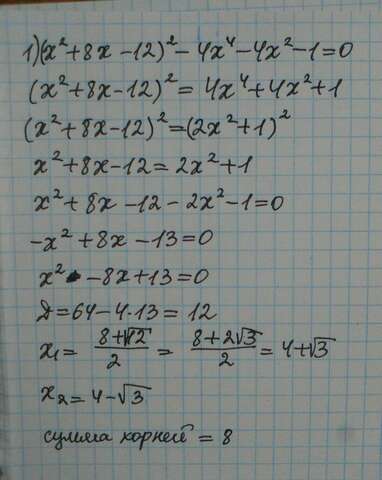 1)(x²+8x-12)²-4x⁴-4x²-1=0
(x²+8x-12)²=4x⁴+4x²+1
(x²+8x-12)²=(2x²+1)²
x²+8x-12=2x²+1
x²+8x-12-2x²-1=0
-x²+8x-13=0
x²-8x+13=0
D=64-4·13=12
x₁=(8+√12)/2=(8+2√3)/2=4+√3
x₂=4-√3
сумма корней=8